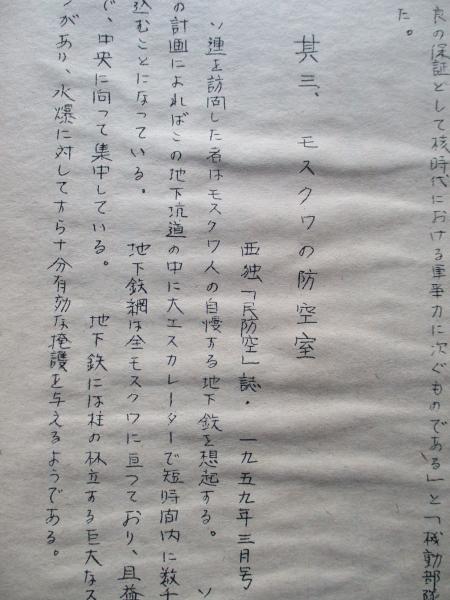 良の保証として核時代における軍事力に次ぐものである」と「機動部隊
た。
其三、 モスクワの防空室
西独「民防空」誌・ 一九五九年三月号
ソ連を訪問した者はモスクワ人の自慢する地下鉄を想起する。 ソ
の計画によればこの地下坑道の中に大エスカレーターで短時間内に数千
込むことになっている。 地下鉄網は全モスクワに亘つており、且
で、中央に向つて集中している。 地下鉄には柱の林立する巨大なス
があり、水爆に対してすら十分有効な掩護を与えるようである。